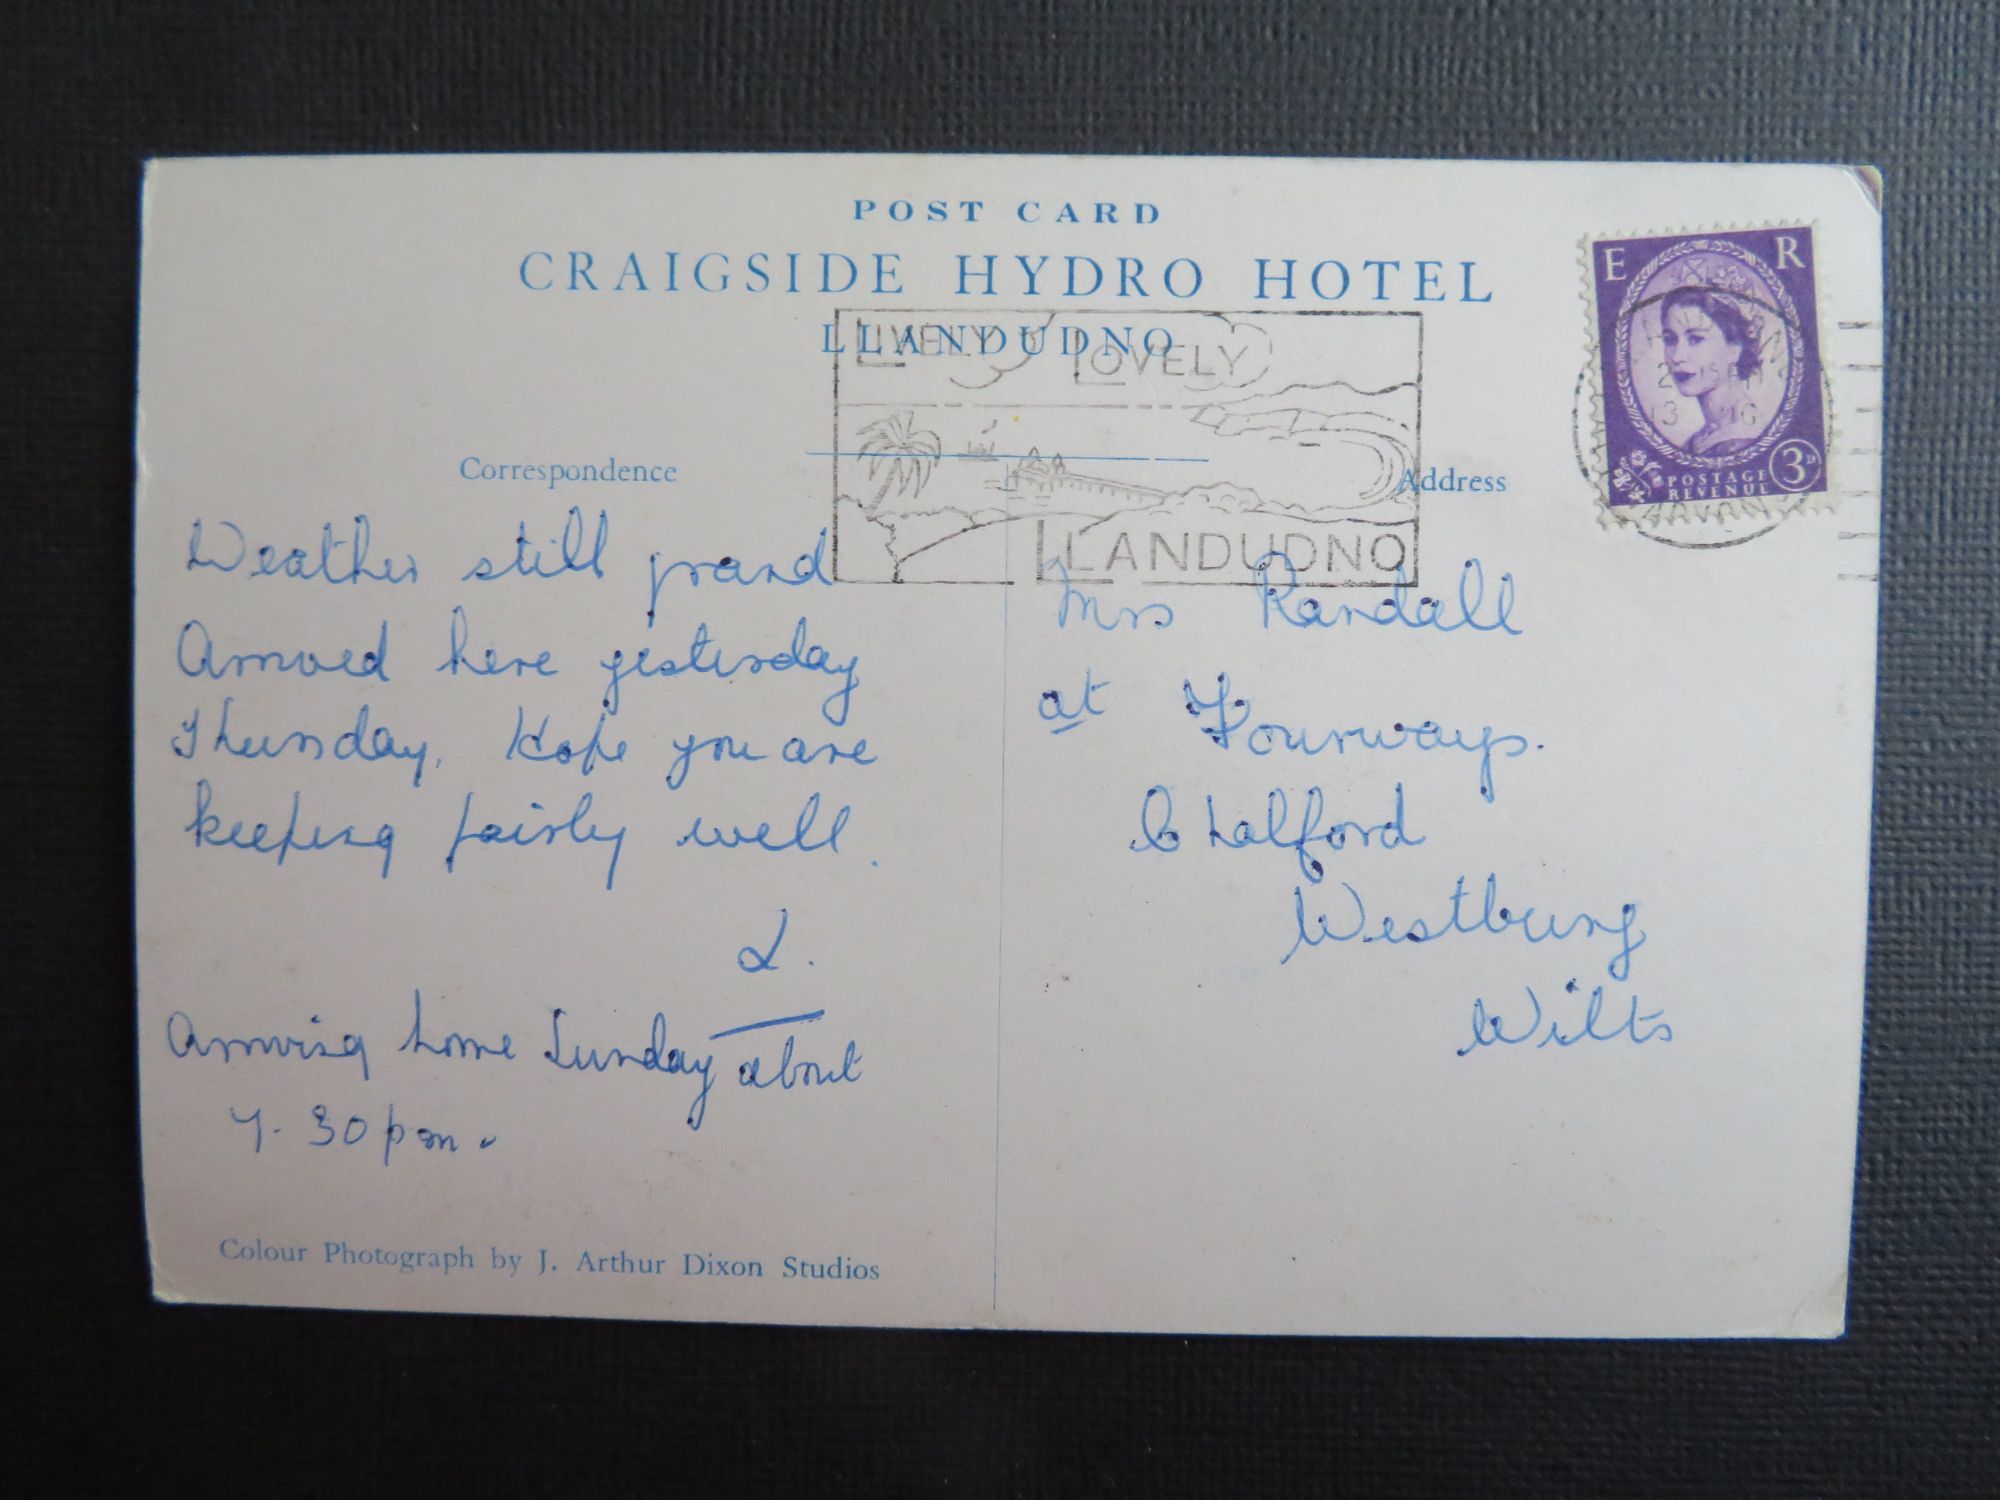 POST CARD
CRAIGSIDE HYDRO HOTEL
LLANDUDNO
LIVELY LOVELY
LLANDUDNO
E R
2 15 PM
13
POSTAGE
REVENUE
3D
Correspondence
Weather still grand
Arrived here yesterday
Thursday. Hope you are
keeping fairly well.
L.
Arriving home Sunday about
7.30 pm.
Colour Photograph by J. Arthur Dixon Studios
Address
Mrs Randall
at Fourways.
Chalford
Westbury
Wilts